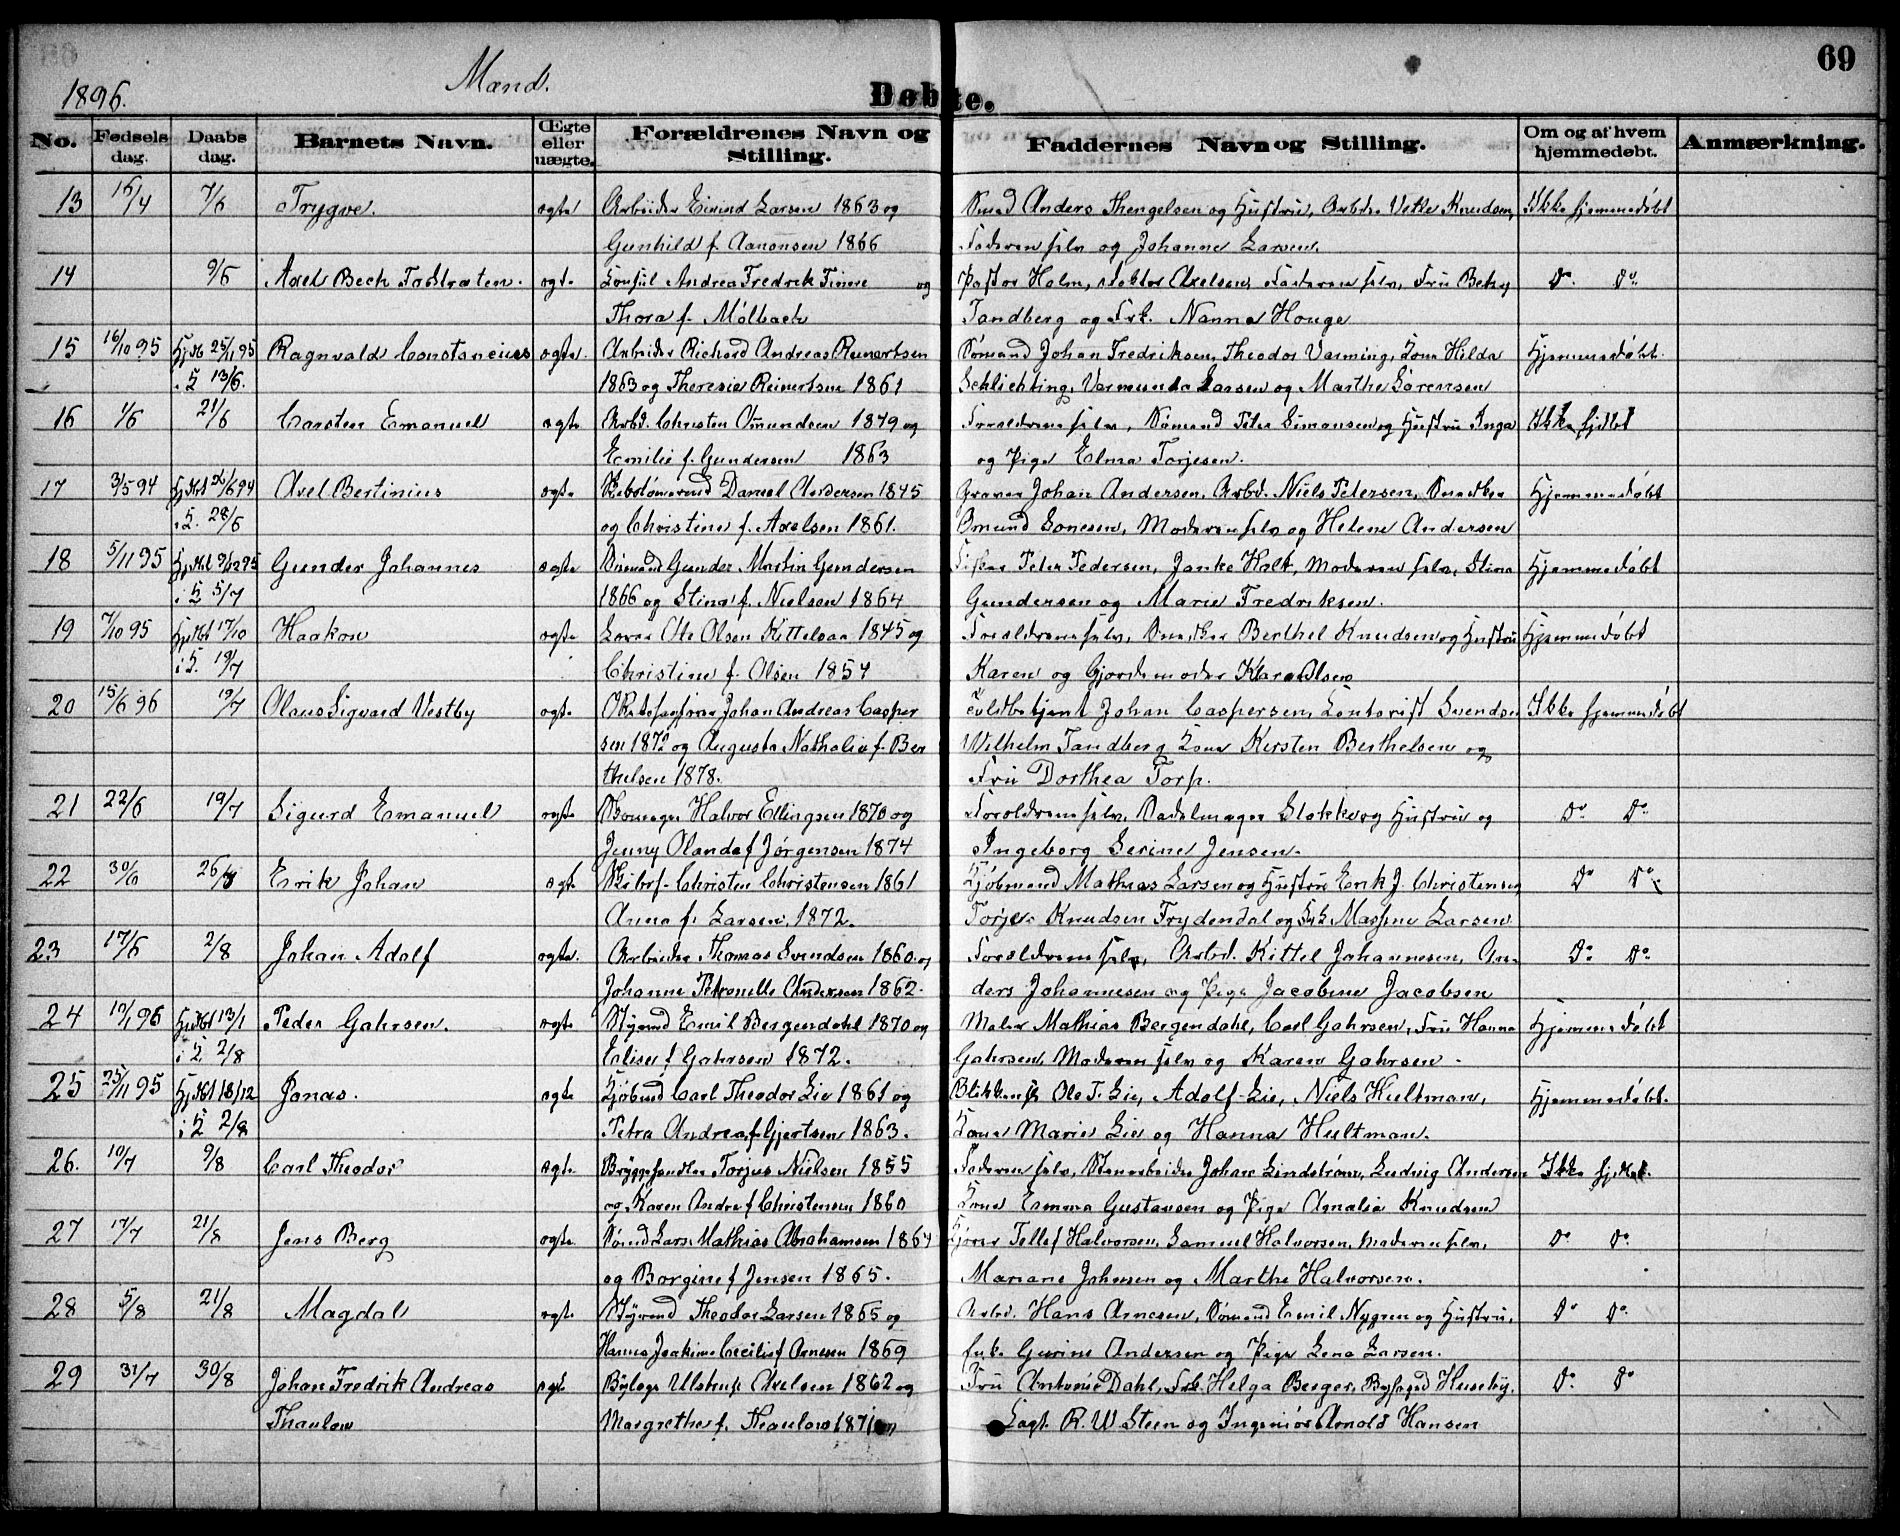 69
1896.
Mænd.
Døbte.
No.
Fødsels dag.
Daabs dag.
Barnets Navn.
Ægte eller uægte.
Forældrenes Navn og Stilling.
Faddernes Navn og Stilling.
Om og af hvem hjemmedøbt.
Anmærkning.
13 15/4 7/6 Trygve. ægte Arbeider Eivind Larsen 1863 og Smed Anders Thengelsen og Hustru, Arbdr. Vetle Knudsen, Ikke hjemmedøbt
Gunhild f. Aanonsen 1866 Faderen selv og Johanne Larsen.
14 9/6 Axel Bech Fastraten. ægte Consul Andrea Fredrik Finne og Pastor Holm, Doktor Axelsen, Faderen selv, Fru Betzy Do. Do.
Thora f. Mølbach Tandberg og Frk. Nanna Houge
15 16/10 95 Hjdbt 25/11 95 Ragnvald Constancius ægte. Arbeider Richard Andreas Reinertsen Sømand Johan Fredriksen, Theodor Varming, Kone Hilda Hjemmedøbt.
i K 13/6. 1863 og Theresie Reinertsen 1861 Schlichting, Vermunda Larsen og Marthe Sørensen
16 1/6 21/6 Carsten Emanuel ægte Arbd. Christen Omundsen 1849 og Forældrene selv, Sømand Peter Simonsen og Hustru Inga Ikke hjdbt
Emilie f. Gundersen 1863 og Pige Elma Torjesen.
17 3/5 94 Hjdbt 26/6 94 Axel Bertinius ægte Skibstømmermd Daniel Andersen 1845 Graver Johan Andersen, Arbd. Niels Petersen, Snedker Hjemmedøbt
i K. 28/6 og Christine f. Axelsen 1861. Omund Gonesen, Moderen selv og Helene Andersen
18 5/11 95 Hjdbt 9/12 95 Gunder Johannes ægte Sømand Gunder Martin Gundersen Fisker Peter Pedersen, Janke Holt, Moderen selv, Stina Hjemmedøbt
i K 5/7 1866 og Stina f. Nielsen 1864 Gundersen og Marie Fredriksen.
19 7/10 95 Hjdbt 17/10 Haakon ægte Garver Ole Olsen Kittelsaa 1845 og Forældrene selv, Snedker Berthel Knudsen og Hustru Hjemmedøbt
i K. 19/7 Christine f. Olsen 1854 Karen og Gjordemoder Klara Olsen
20 15/6 96 19/7 Olaus Sigvard Vestby ægte Skibsfører Johan Andreas Casper Toldbetjent Johan Caspersen, Kontorist Svendsen Ikke hjemmedøbt
sen 1872 og Augusta Nathalie f. Ber Wilhelm Tandberg Kone Kirsten Berthelsen og
thelsen 1878. Fru Dorthea Torp.
21 22/6 19/7 Sigurd Emanuel ægte Skomager Halvor Ellingsen 1870 og Forældrene selv, Sadelmager Stokke og Hustru og Do Do
Jenny Olanda f Jørgensen 1874 Ingeborg Serine Jensen.
22 30/6 26/7 Erik Johan ægte Skibsf. Christen Christensen 1861 Kjøbmand Mathias Larsen og Hustru Erik J. Christensen Do Do
Anna f. Larsen, 1872. Torjer Knudsen Frydendal og Frk. Massine Larsen
23 17/6 2/8 Johan Adolf ægte. Arbeider Thomas Svendsen 1860 og Forældrene selv, Arbd. Kittel Johannesen, An- Do Do
Johanne Petronelle Andersen 1862. ders Johannesen og Pige Jacobine Jacobsen
24 10/1 96 Hjdbt 13/1 Peder Gahrsen. ægte Styrmd Emil Bergendahl 1870 og Maler Mathias Bergendahl, Carl Gahrsen, Fru Hanna Hjemmedøbt
i K 2/8 Elise f Gahrsen 1872. Gahrsen, Moderen selv og Karen Gahrsen -
25 25/11 95 Hjdbt 18/12 Jonas. ægte Kjøbmd Carl Theodor Lie 1861 og Blikkensl. Ole T. Lie, Adolf Lie, Niels Hultman, Hjemmedøbt.
i K 2/8 Petra Andrea f. Gjertsen 1863. Kone Marie Lie og Hanna Hultman.
26. 10/7 9/8 Carl Theodor ægte Bryggehandler Torjus Nielsen 1855 Faderen selv, Stenarbeider Johan Lindstrøm, Ludvig Andersen Ikke hjdbt.
og Karen Andrea f Christensen 1860 Kone Emma Gustavsen og Pige Amalia Knudsen
27 17/7 21/8 Jens Berg ægte Sømd Lars Mathias Abrahamsen 1864 Kjører Tellef Halvorsen, Samuel Halvorsen, Moderen selv, Do Do
og Borgine f Jensen 1865. Mariane Johnsen og Marthe Halvorsen.
28 5/8 21/8 Magdal ægte Styrmd Theodor Larsen 1865 og Arbd. Hans Arnesen, Sømand Emil Nygren og Hustru, Do Do
Hanna Joakime Cecilie f Arnesen 1869 Enke Gurine Andersen og Pige Lena Larsen.
29 31/7 30/8 Johan Fredrik Andreas ægte Bylæge Ulstrup Axelsen 1862 og Fru Antonie Dahl, Frk. Helga Berger, Byfoged Huseby, Do. Do
Thaulow Margrethe f. Thaulow 1871 Kapt. R. W Steen og Ingeniør Arnold Hansen